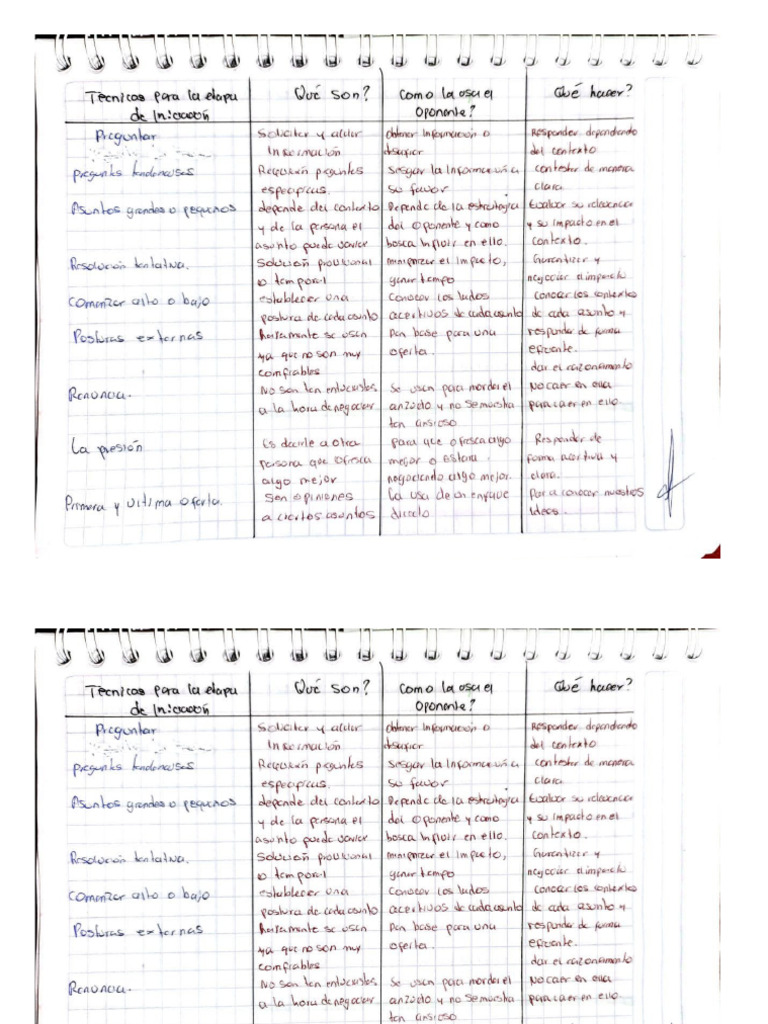 Técnicas para la etapa de Iniciación
Qué son?
Como la usa el Oponente?
Qué hacer?
Preguntar
Solicitar y
Información
obtener Información o
Responder dependiendo
del contexto
Preguntas tendenciosas
Requieren preguntas
especificas.
Sesgar la Información a
su favor
contestar de manera
clara
Asuntos grandes o pequeños
depende del contexto
y de la persona el
asunto puede variar
Depende de la estrategia
del Oponente y como
busca Influir en ello.
Evaluar su relevancia
y su impacto en el
contexto.
Resolución tentativa.
Solución provisional
o temporal
minimizar el impacto,
ganar tiempo
Garantizar y
negociar el impacto
Comenzar alto o bajo
establecer una
postura de cada asunto
Conocer los lados
acertivos de cada asunto
conocer los contextos
de cada asunto y
Posturas externas
Raramente se usan
ya que no son muy
confiables
Dan base para una
oferta.
responder de forma
eficiente.
dar el razonamiento
Renuncia.
No son tan entusiastas
a la hora de negociar
Se usan para morder el
anzuelo y no se muestra
tan ansioso
No caer en ella
para caer en ello.
La presión
Es decirle a otra
persona que ofresca
algo mejor
para que ofresca algo
mejor o estara
negociando algo mejor.
Responder de
forma acertiva y
clara.
Primera y ultima oferta.
Son opiniones
a ciertos asuntos
La usa de un enfoque
directo
Para conocer nuestras
Ideas.
Técnicas para la etapa de Iniciación
Qué son?
Como la usa el Oponente?
Qué hacer?
Preguntar
Solicitar y
Información
obtener Información o
Responder dependiendo
del contexto
Preguntas tendenciosas
Requieren preguntas
especificas.
Sesgar la Información a
su favor
contestar de manera
clara
Asuntos grandes o pequeños
depende del contexto
y de la persona el
asunto puede variar
Depende de la estrategia
del Oponente y como
busca Influir en ello.
Evaluar su relevancia
y su impacto en el
contexto.
Resolución tentativa.
Solución provisional
o temporal
minimizar el impacto,
ganar tiempo
Garantizar y
negociar el impacto
Comenzar alto o bajo
establecer una
postura de cada asunto
Conocer los lados
acertivos de cada asunto
conocer los contextos
de cada asunto y
Posturas externas
Raramente se usan
ya que no son muy
confiables
Dan base para una
oferta.
responder de forma
eficiente.
dar el razonamiento
Renuncia.
No son tan entusiastas
a la hora de negociar
Se usan para morder el
anzuelo y no se muestra
tan ansioso
No caer en ella
para caer en ello.